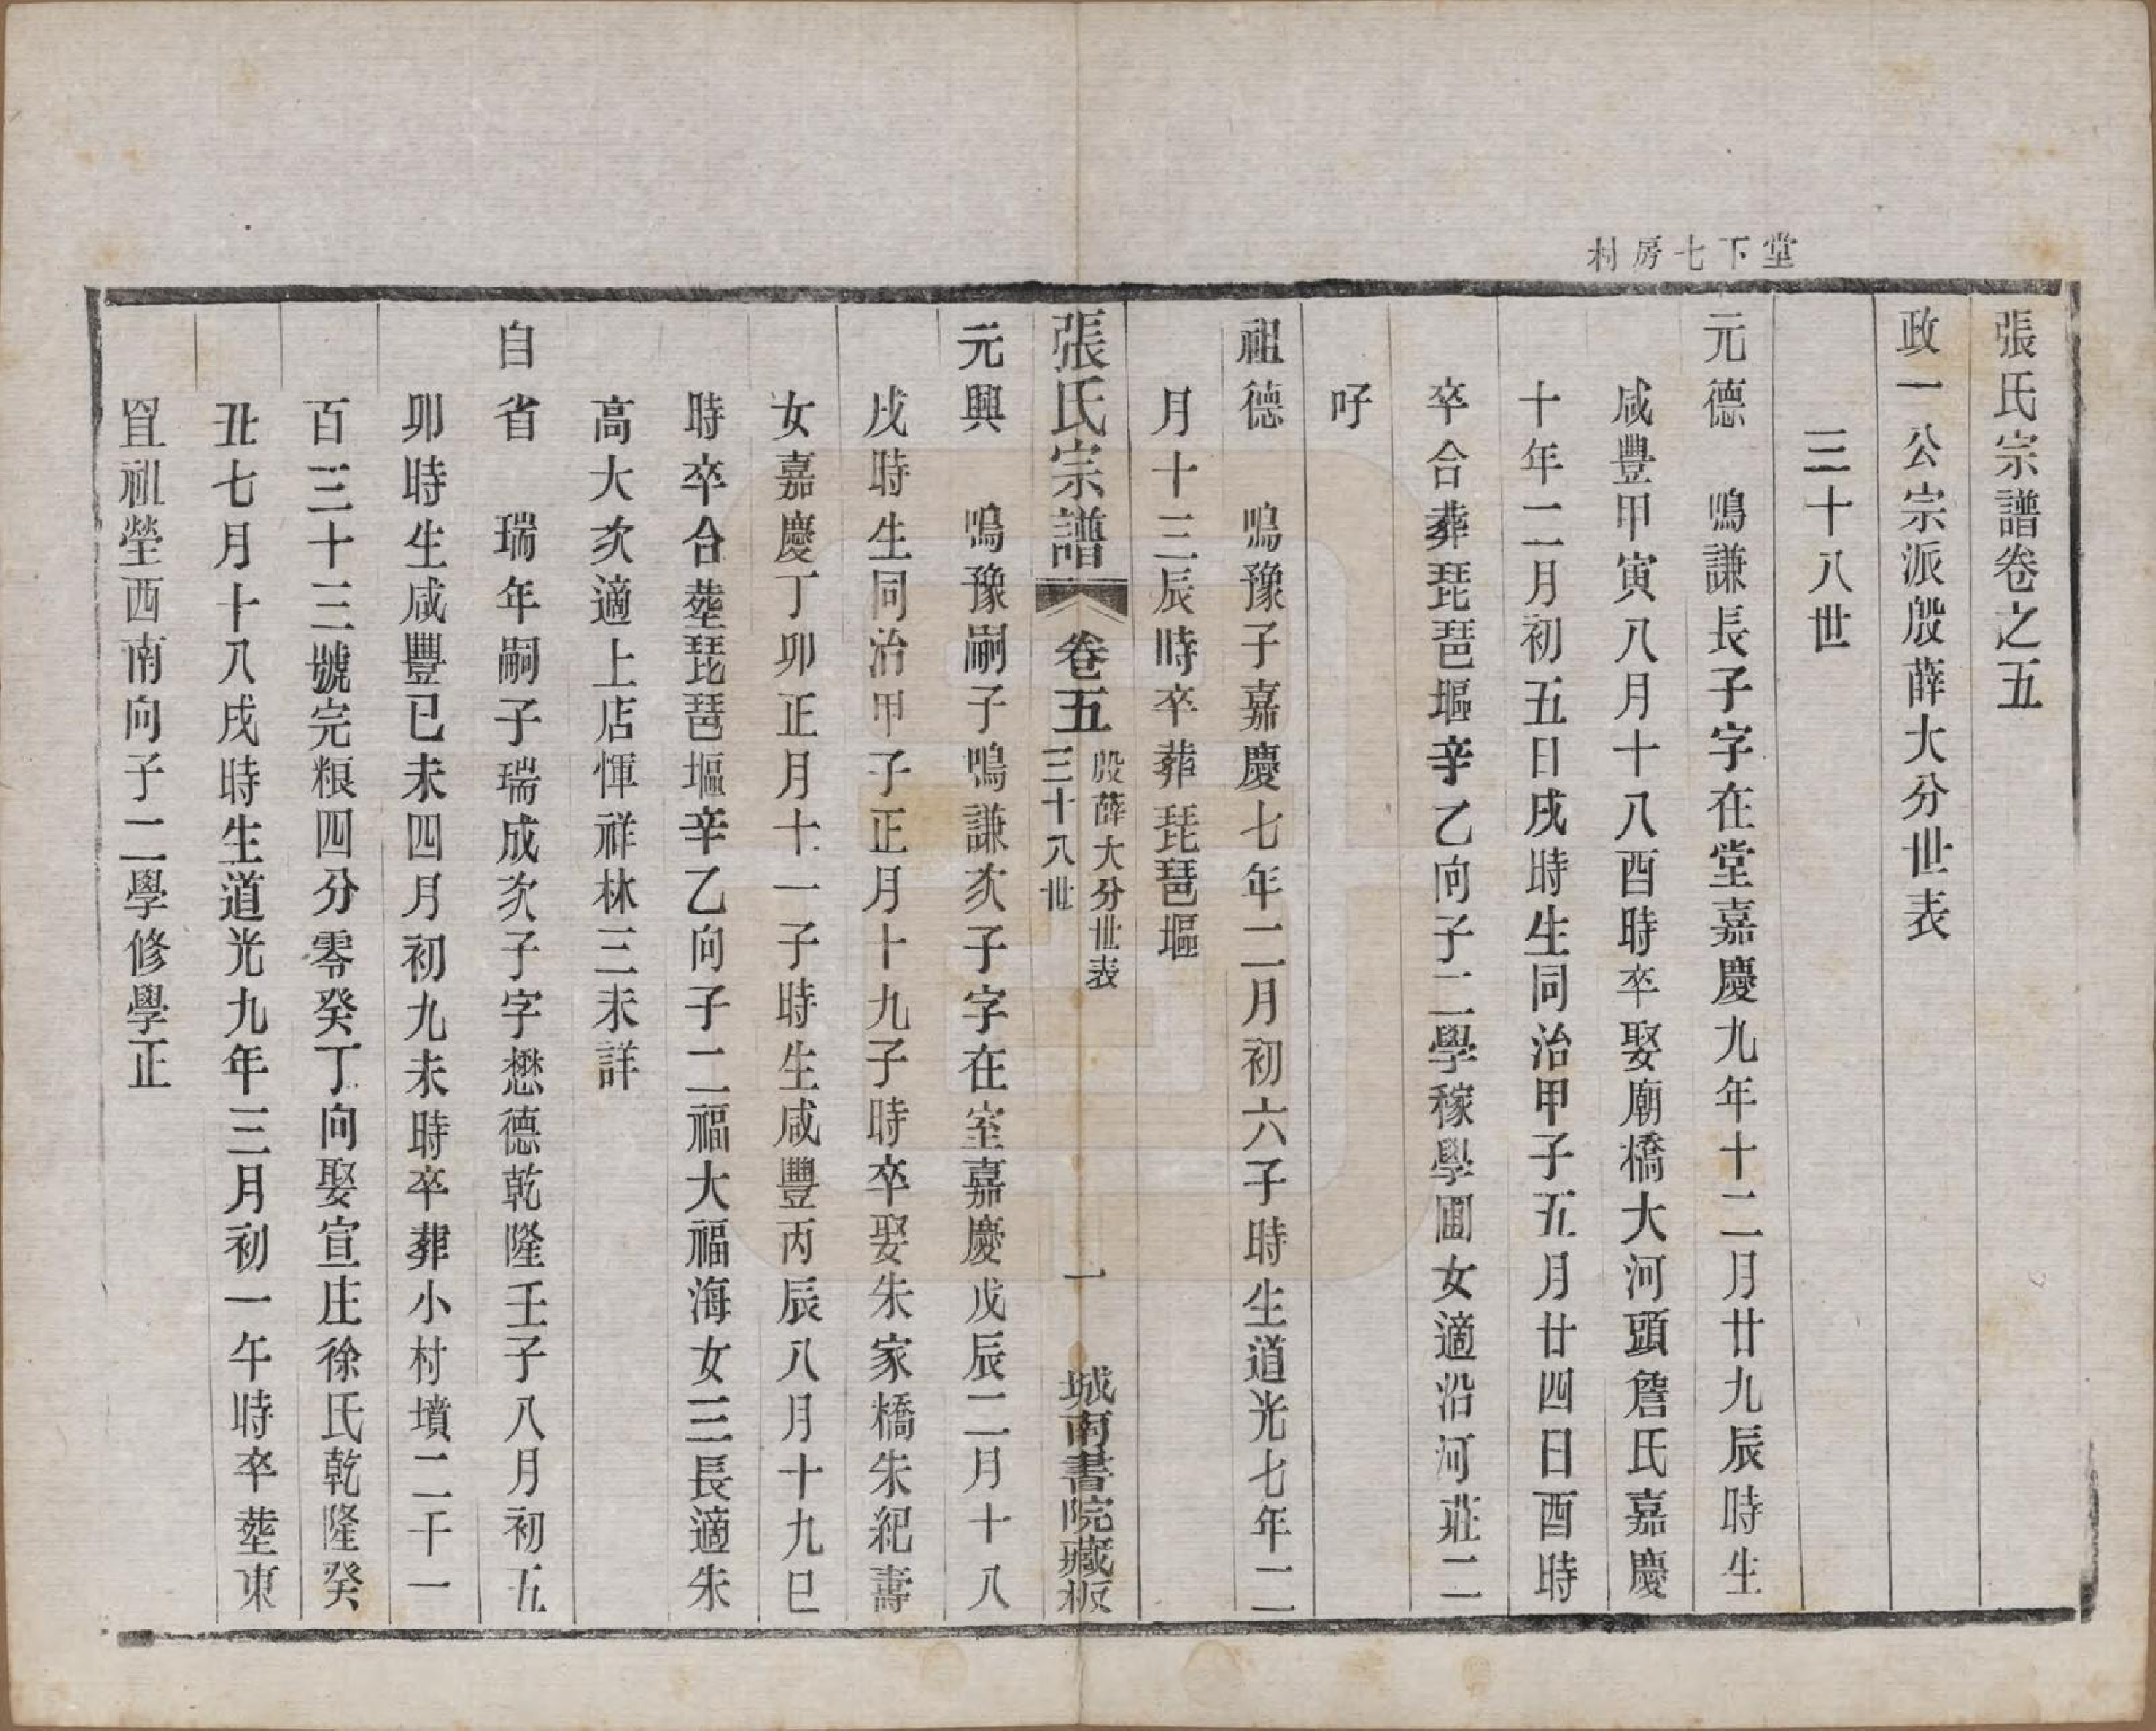 堂下七房村
張氏宗譜卷之五
政一公宗派殷薛大分世表
三十八世
元德　鳴謙長子字在堂嘉慶九年十二月廿九辰時生
咸豐甲寅八月十八酉時卒娶廟橋大河頭詹氏嘉慶
十年二月初五日戌時生同治甲子五月廿四日酉時
卒合葬琵琶塸辛乙向子二學稼學圃女適沿河莊二
吁
祖德　鳴豫子嘉慶七年二月初六子時生道光七年二
月十三辰時卒葬琵琶塸
張氏宗譜　卷五　殷薛大分世表　三十八世　一　城南書院藏板
元興　鳴豫嗣子鳴謙次子字在室嘉慶戊辰二月十八
戌時生同治甲子正月十九子時卒娶朱家橋朱紀壽
女嘉慶丁卯正月十一子時生咸豐丙辰八月十九巳
時卒合塟琵琶塸辛乙向子二福大福海女三長適朱
高大次適上店惲祥林三未詳
自省　瑞年嗣子瑞成次子字懋德乾隆壬子八月初五
卯時生咸豐已未四月初九未時卒葬小村墳二千一
百三十三號完粮四分零癸丁向娶宣庄徐氏乾隆癸
丑七月十八戌時生道光九年三月初一午時卒塟東
罝祖塋西南向子二學修學正